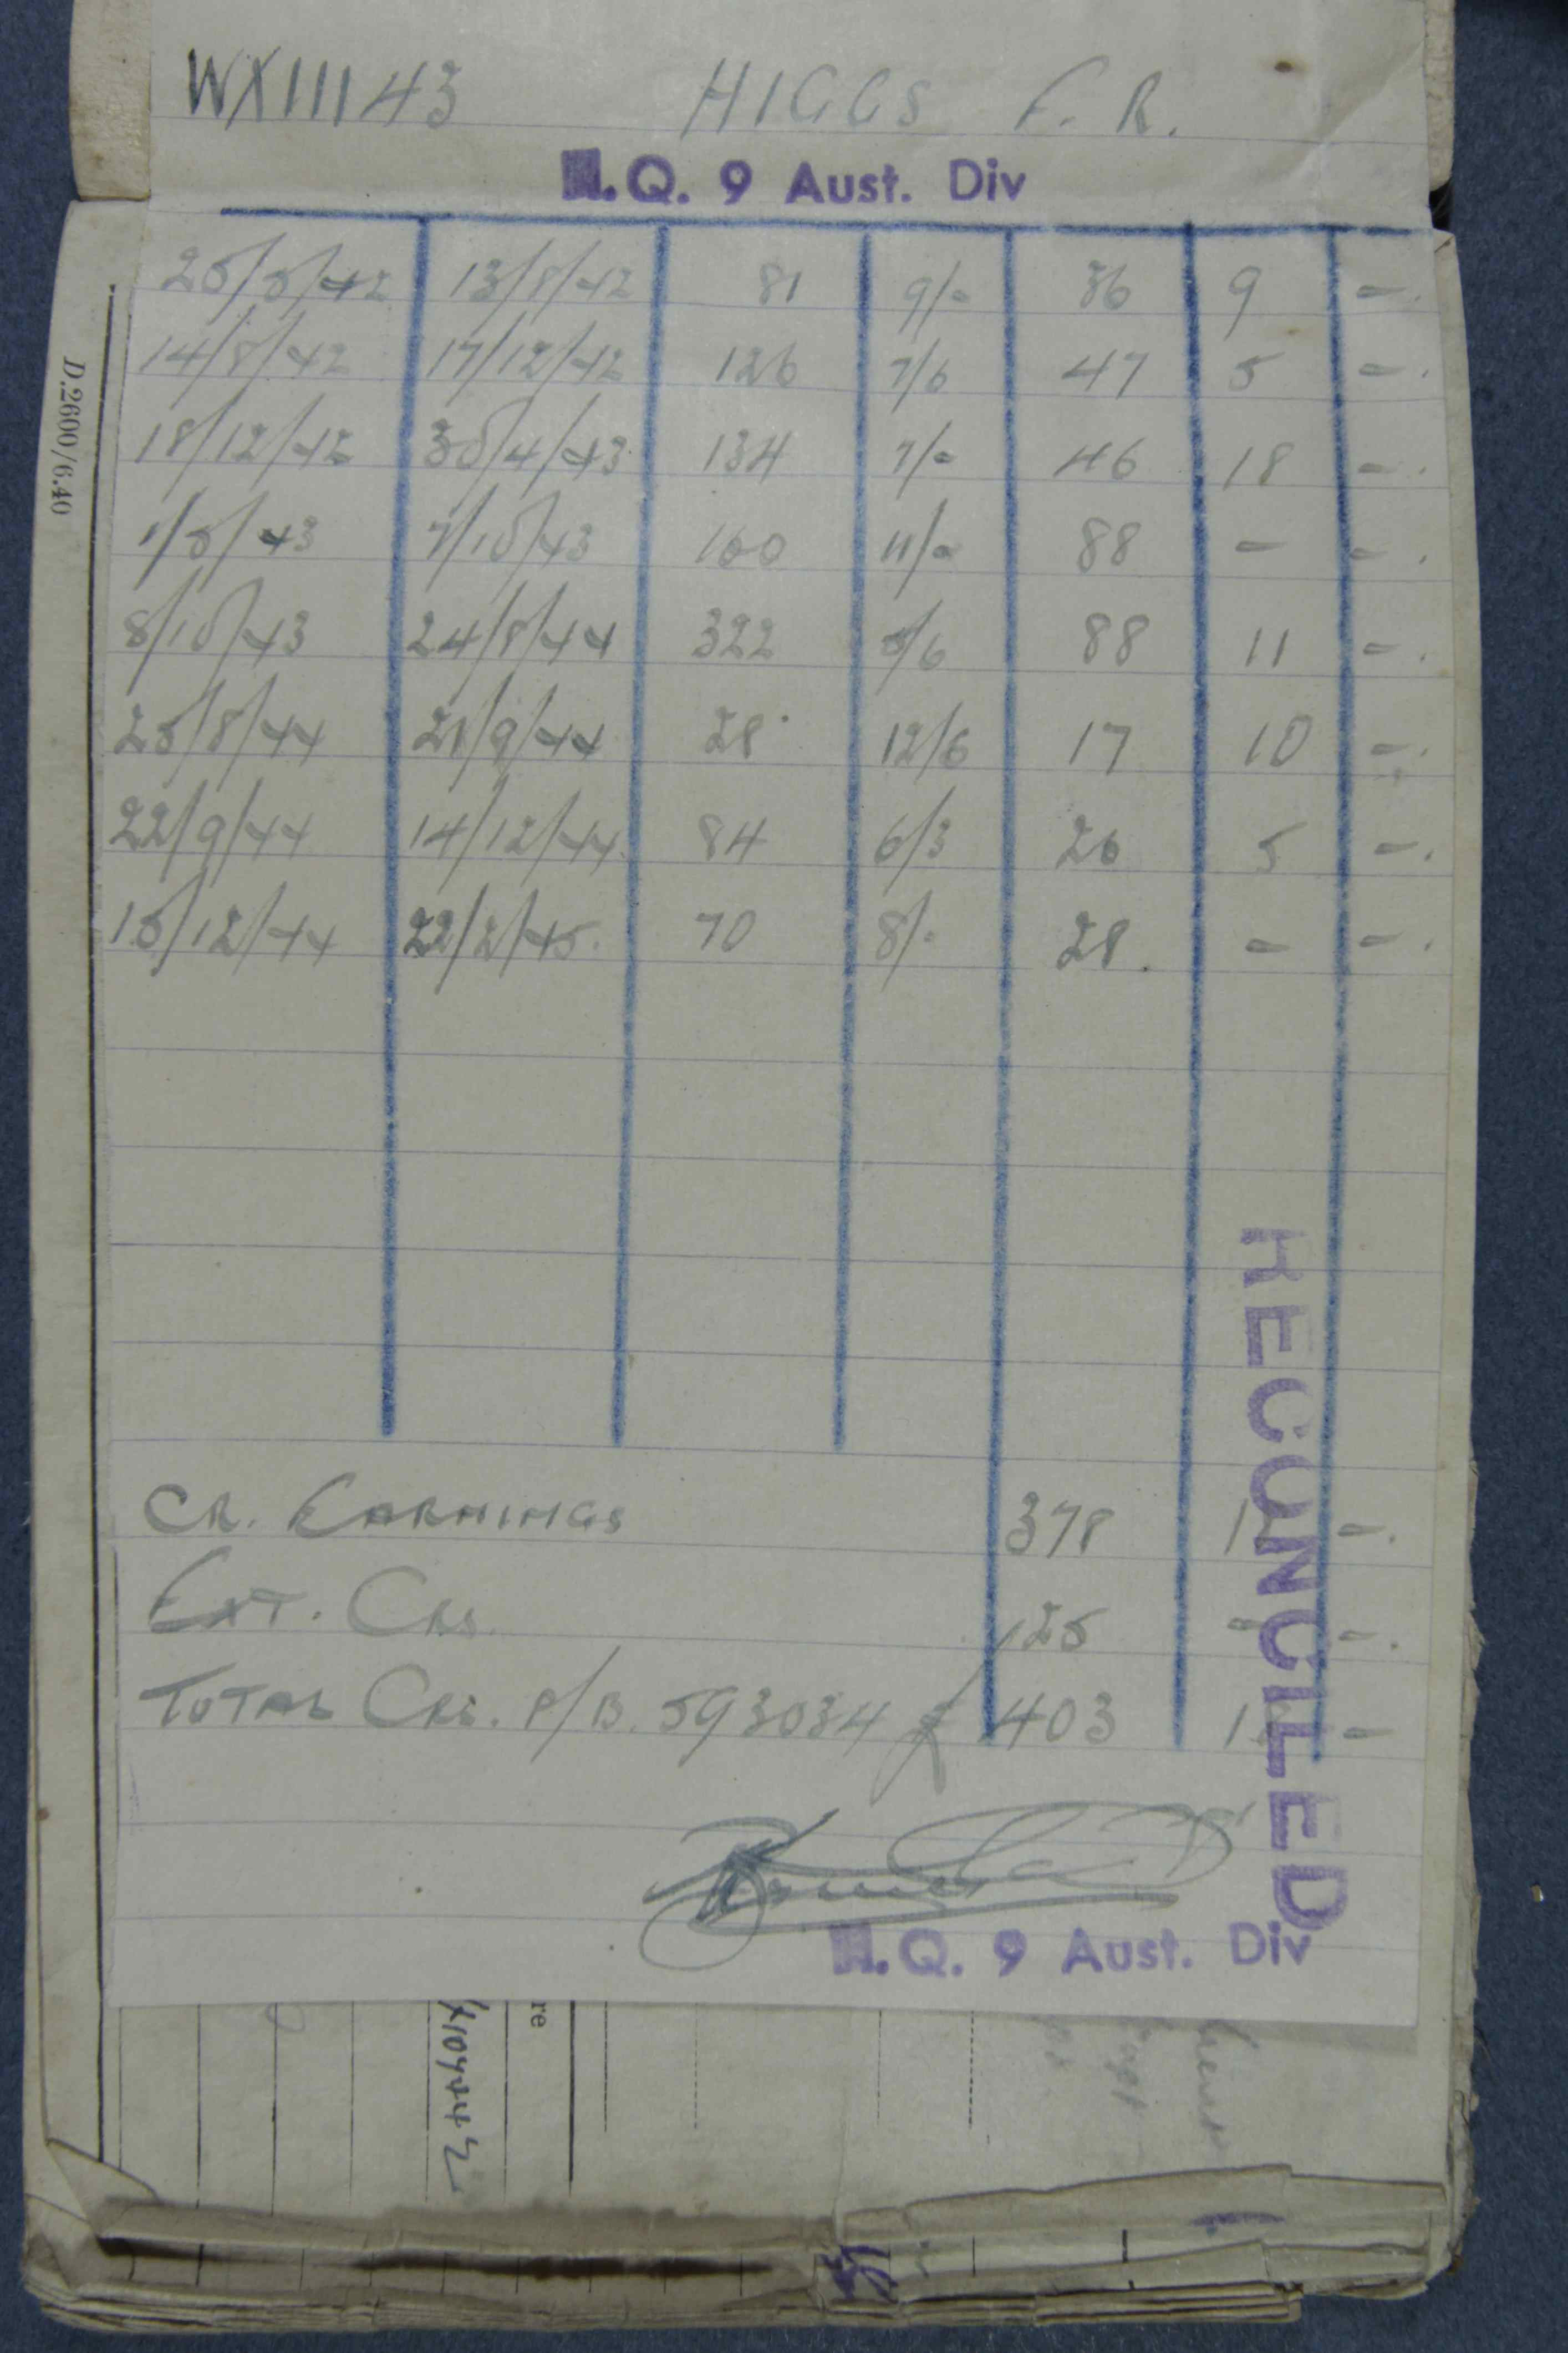 WX11143 HIGGS F. R.
H.Q. 9 Aust. Div
25/5/42 13/8/42 81 9/- 36 9 -.
14/8/42 17/12/42 126 7/6 47 5 -.
18/12/42 30/4/43 134 7/- 46 18 -.
1/5/43 7/10/43 160 11/- 88 - -.
8/10/43 24/8/44 322 5/6 88 11 -.
25/8/44 21/9/44 28 12/6 17 10 -.
22/9/44 14/12/44 84 6/3 26 5 -.
15/12/44 22/2/45 70 8/- 28. - -.
CR. EARNINGS 378 18 -.
EXT. CRS. 25 - -.
TOTAL CRS. P/B. 593034 £ 403 18 -
RECONCILED
H.Q. 9 Aust. Div
D.2600/6.40
re